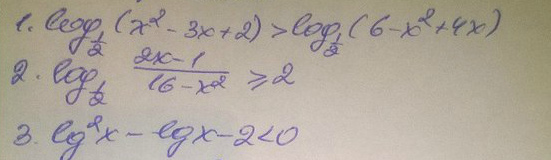 1. log_{1/2} (x² - 3x + 2) > log_{1/2} (6 - x² + 4x)
2. log_{1/2} \frac{2x - 1}{16 - x²} ≥ 2
3. lg²x - lgx - 2 < 0